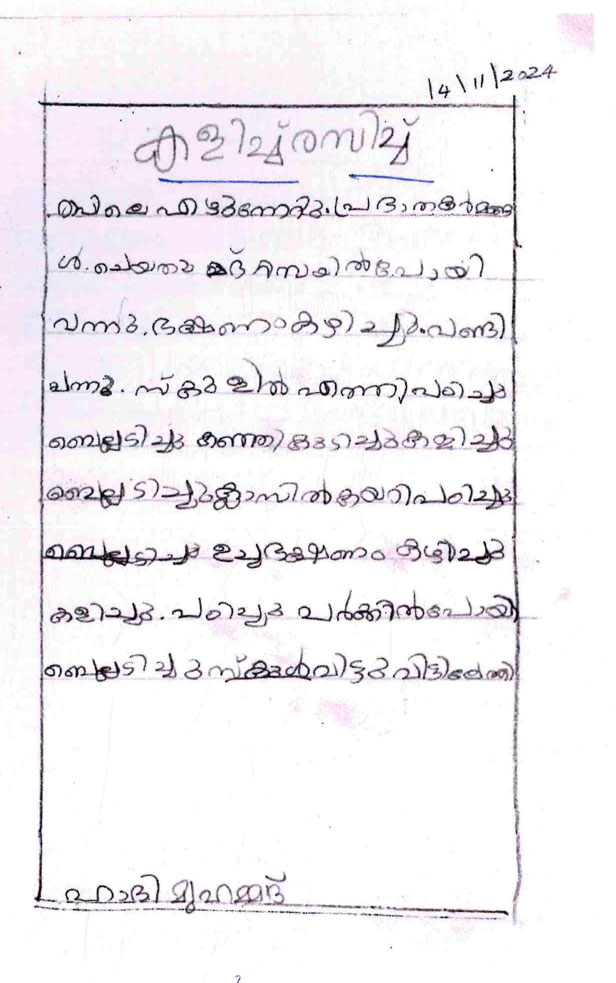 14/11/2024
കളിച്ച്‌രസിച്ച്
രാവിലെ എഴുന്നേറ്റു. പ്രഭാതകർമങ്ങ
ൾ. ചെയതു മദ്റസയിൽ പോയി
വന്നു. ഭക്ഷണം കഴിച്ചു. വണ്ടി
വന്നു. സ്കുളിൽ എത്തി പഠിച്ചു
ബെല്ലടിച്ചു കഞ്ഞി കുടിച്ചു കളിച്ചു
ബെല്ലടിച്ചു ക്ലാസിൽ കയറി പഠിച്ചു
ബെല്ലടിച്ചു ഉച്ചഭക്ഷണം കഴിച്ചു
കളിച്ചു. പഠിച്ചു പർക്കിൽ പോയി
ബെല്ലടിച്ചു സ്ക്കൂൾ വിട്ടു വിട്ടിലെത്തി
ഹാദി മുഹമ്മദ്